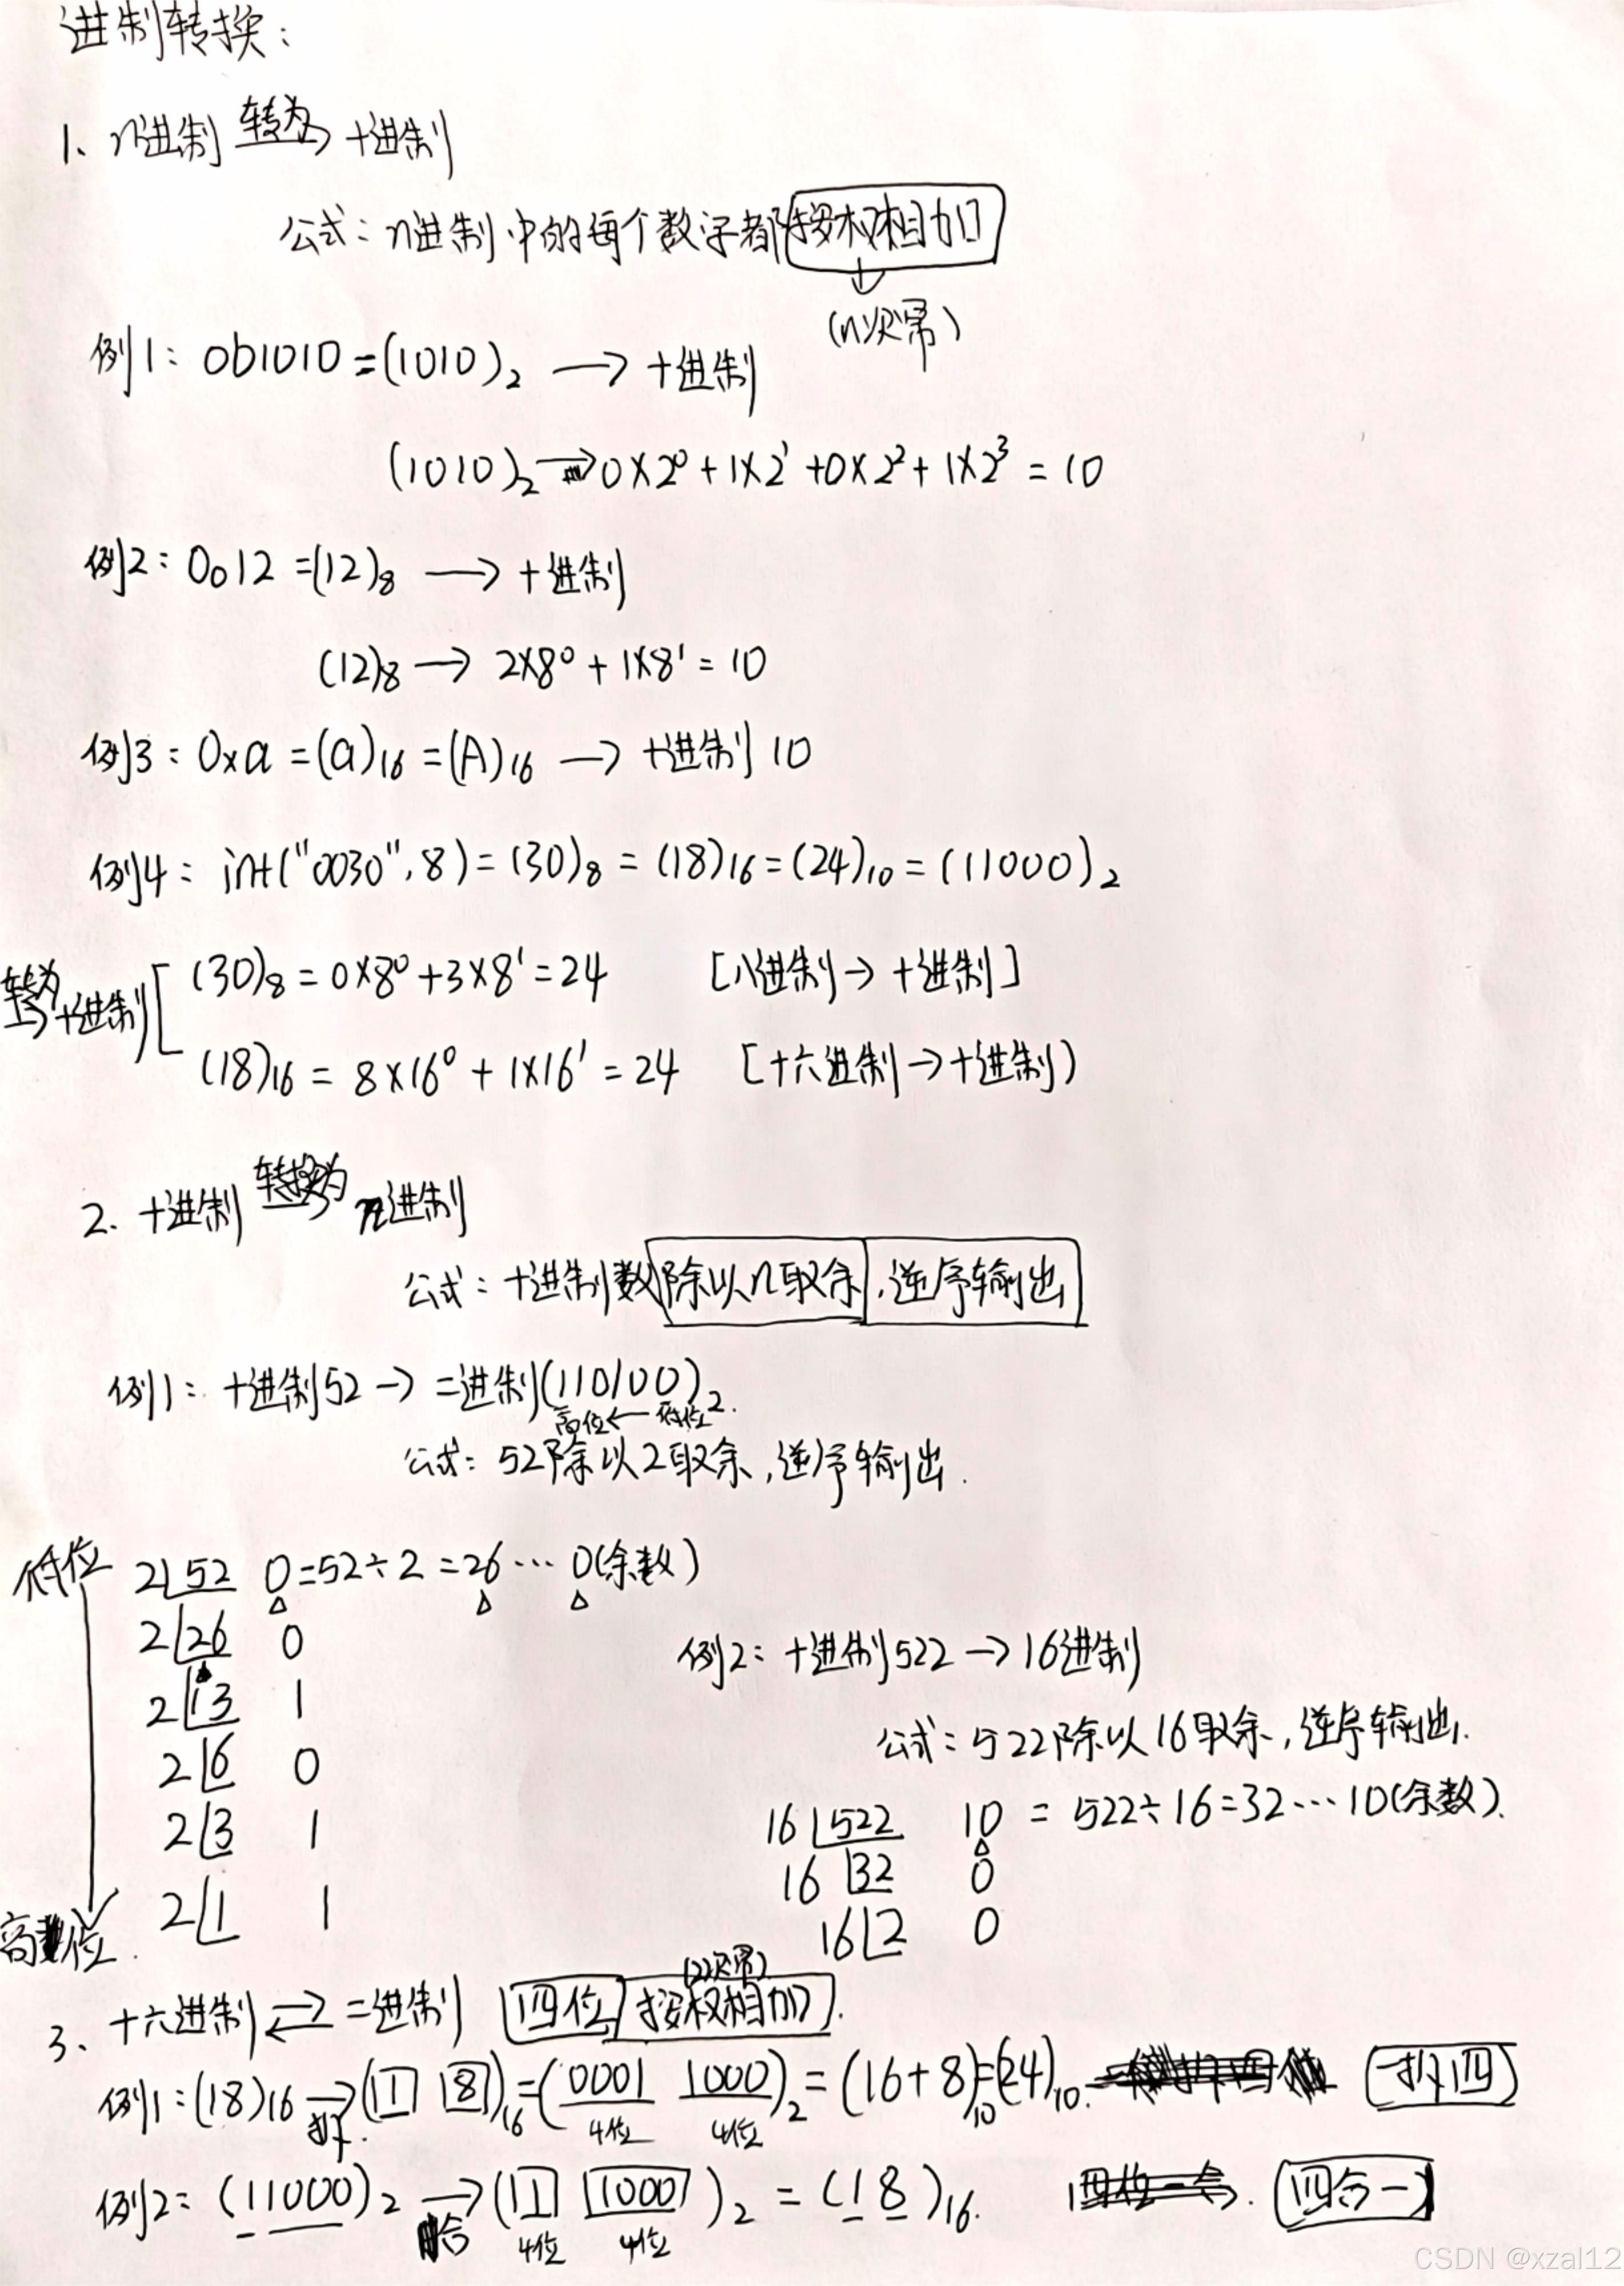 进制转换：
1、n进制 转为→ 十进制
公式：n进制中的每个数字都按权相加
↓
(n次幂)
例1：0b1010=(1010)₂ → 十进制
(1010)₂ → 0×2⁰+1×2¹+0×2²+1×2³=10
例2：0o12=(12)₈ → 十进制
(12)₈ → 2×8⁰+1×8¹=10
例3：0xa=(a)₁₆=(A)₁₆ → 十进制 10
例4：int("0030",8)=(30)₈=(18)₁₆=(24)₁₀=(11000)₂
转为→十进制
(30)₈=0×8⁰+3×8¹=24 [八进制→十进制]
(18)₁₆=8×16⁰+1×16¹=24 [十六进制→十进制)
2. 十进制 转换为→ n进制
公式：十进制数除以n取余，逆序输出
例1：十进制52→二进制(110100)₂.
高位←低位
公式：52除以2取余，逆序输出.
低位 2 52 0=52÷2=26…0(余数)
2 26 0
2 13 1
2 6 0
2 3 1
2 1 1
高位.
例2：十进制522→16进制
公式：522除以16取余，逆序输出.
16 522 10 = 522÷16=32…10(余数).
16 32 0
16 2 0
3、十六进制⇄二进制 四位 按权相加.
(2次幂)
例1：(18)₁₆ →拆. (1 8)₁₆=(0001 1000)₂=(16+8)₁₀=(24)₁₀. 一拆四
4位 4位
例2：(11000)₂ →合 (1 1000)₂=(18)₁₆. 四合一
4位 4位
CSDN @xzal12